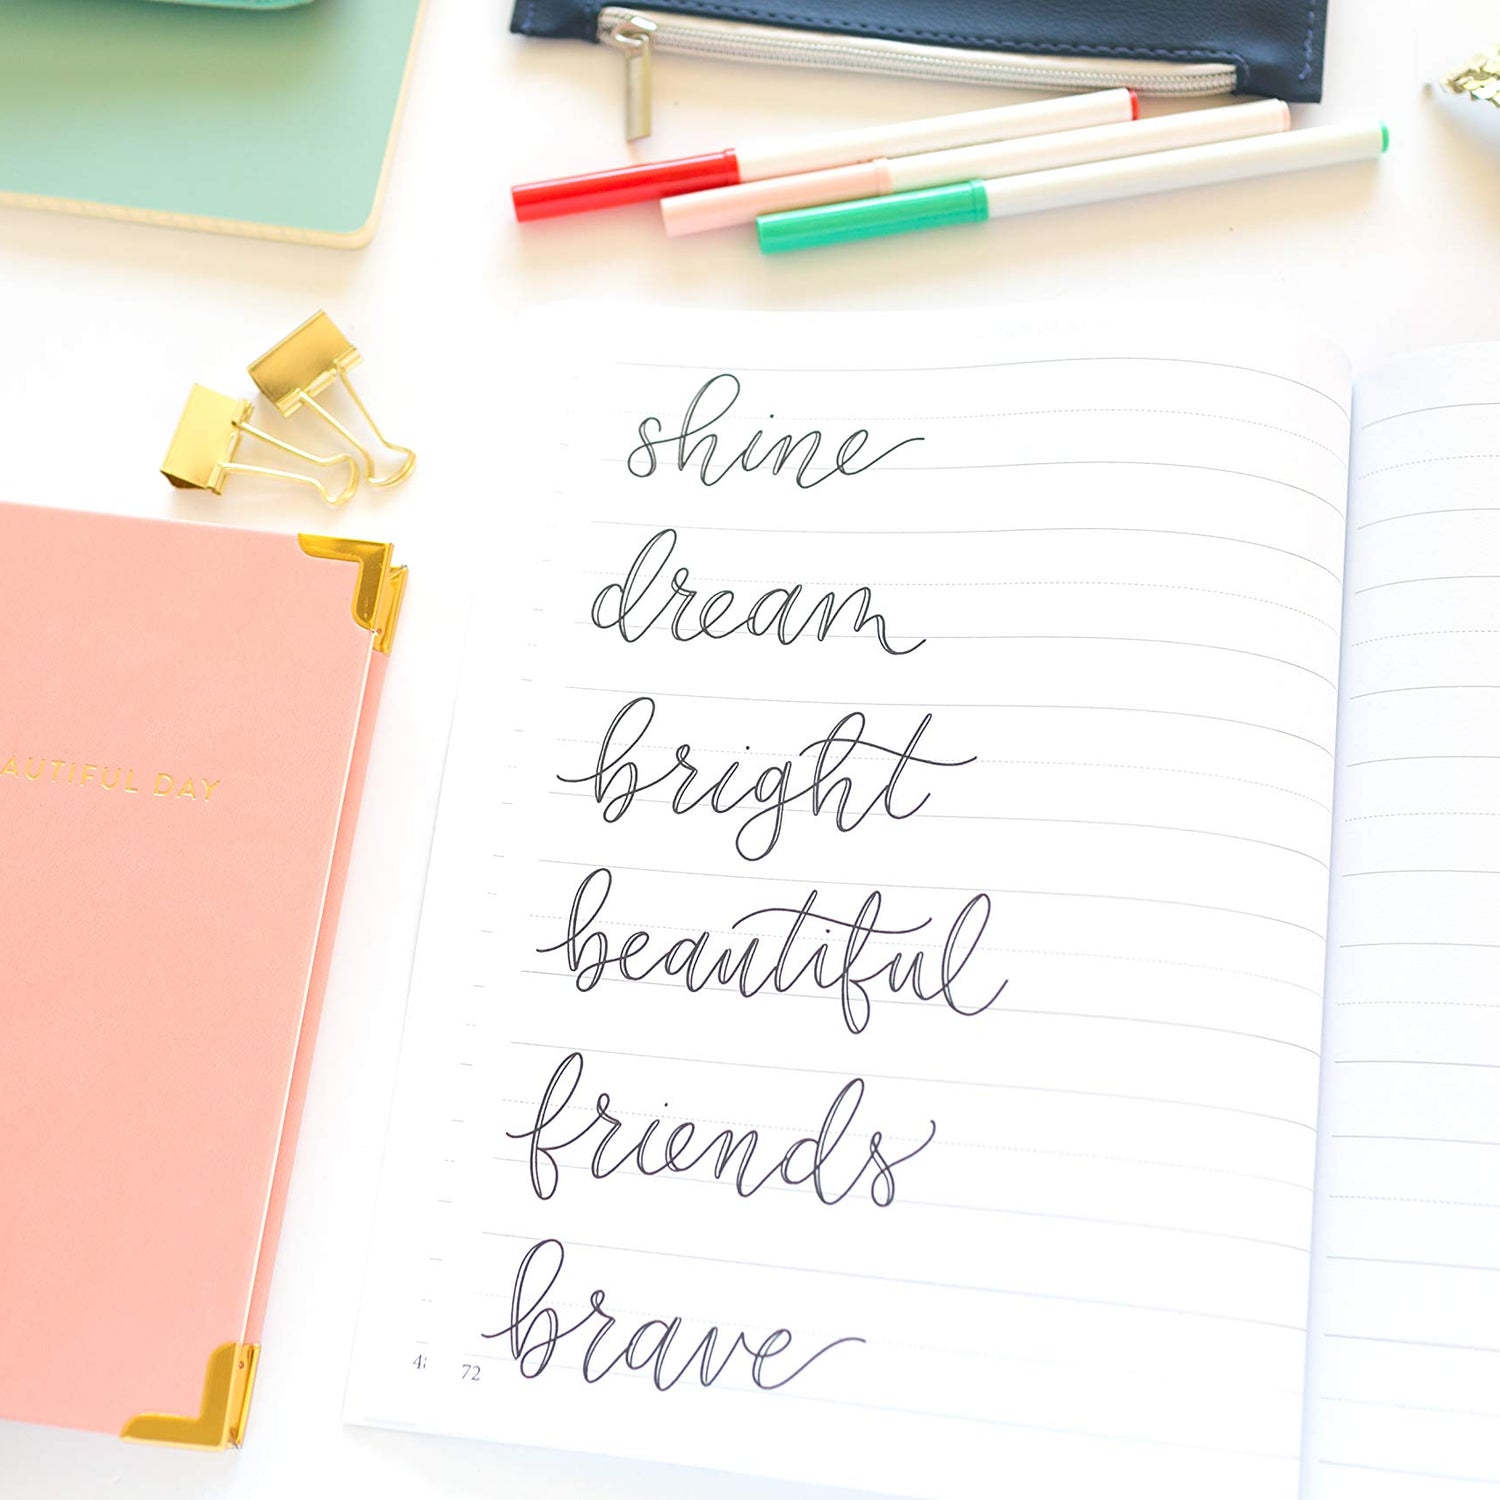 shine
dream
bright
beautiful
friends
brave
72
AUTIFUL DAY